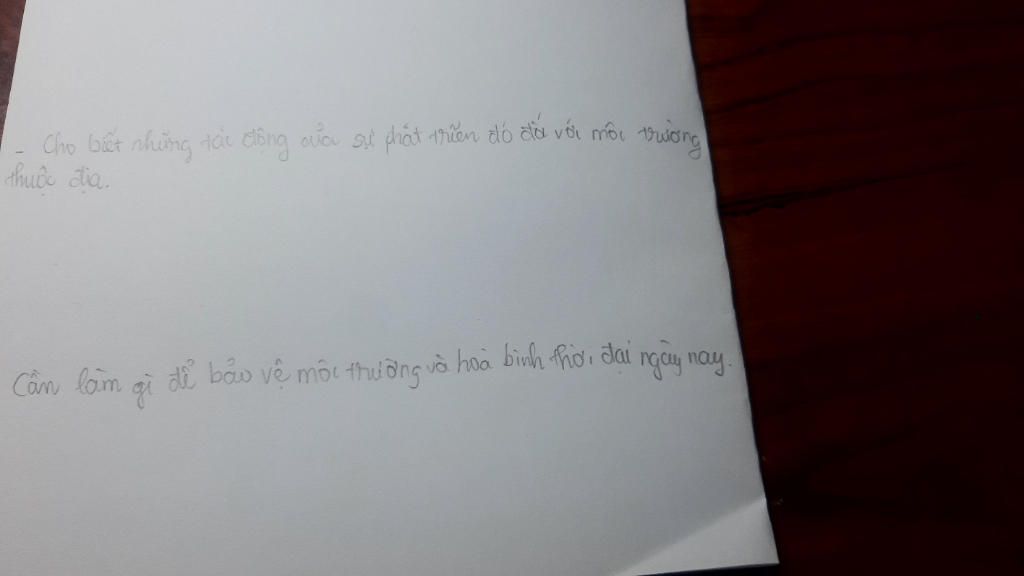 - Cho biết những tác động của sự phát triển đó đối với môi trường
thuộc địa.
Cần làm gì để bảo vệ môi trường và hoà bình thời đại ngày nay.